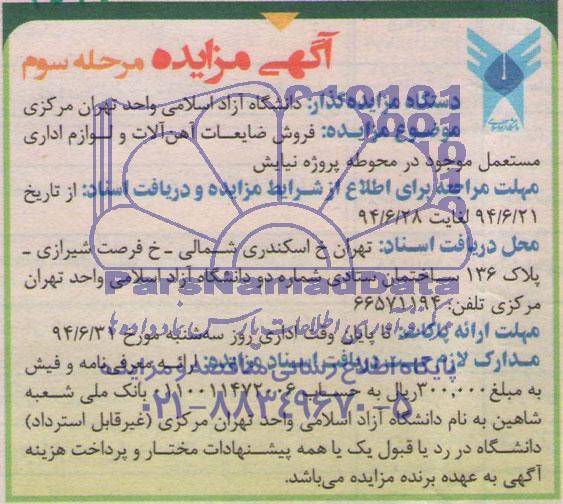 آگهی مزایده مرحله سوم
دستگاه مزایده‌گذار: دانشگاه آزاد اسلامی واحد تهران مرکزی
موضوع مزایده: فروش ضایعات آهن‌آلات و لوازم اداری
مستعمل موجود در محوطه پروژه نیایش
مهلت مراجعه برای اطلاع از شرایط مزایده و دریافت اسناد: از تاریخ
۹۴/۶/۲۱ لغایت ۹۴/۶/۲۸
محل دریافت اسناد: تهران خ اسکندری شمالی ـ خ فرصت شیرازی ـ
پلاک ۱۳۶ ساختمان ستادی شماره دو دانشگاه آزاد اسلامی واحد تهران
مرکزی تلفن: ۶۶۵۷۱۱۹۴
مهلت ارائه پاکات: تا پایان وقت اداری روز سه‌شنبه مورخ ۹۴/۶/۳۱
مدارک لازم جهت دریافت اسناد مزایده: ارائه معرفی‌نامه و فیش
به مبلغ ۳۰۰,۰۰۰ ریال به حساب بانک ملی شعبه
شاهین به نام دانشگاه آزاد اسلامی واحد تهران مرکزی (غیرقابل استرداد)
دانشگاه در رد یا قبول یک یا همه پیشنهادات مختار و پرداخت هزینه
آگهی به عهده برنده مزایده می‌باشد.
ParsNamadData
پایگاه اطلاع رسانی مناقصه و مزایده
۰۲۱-۸۸۳۴۹۶۷۰-۵